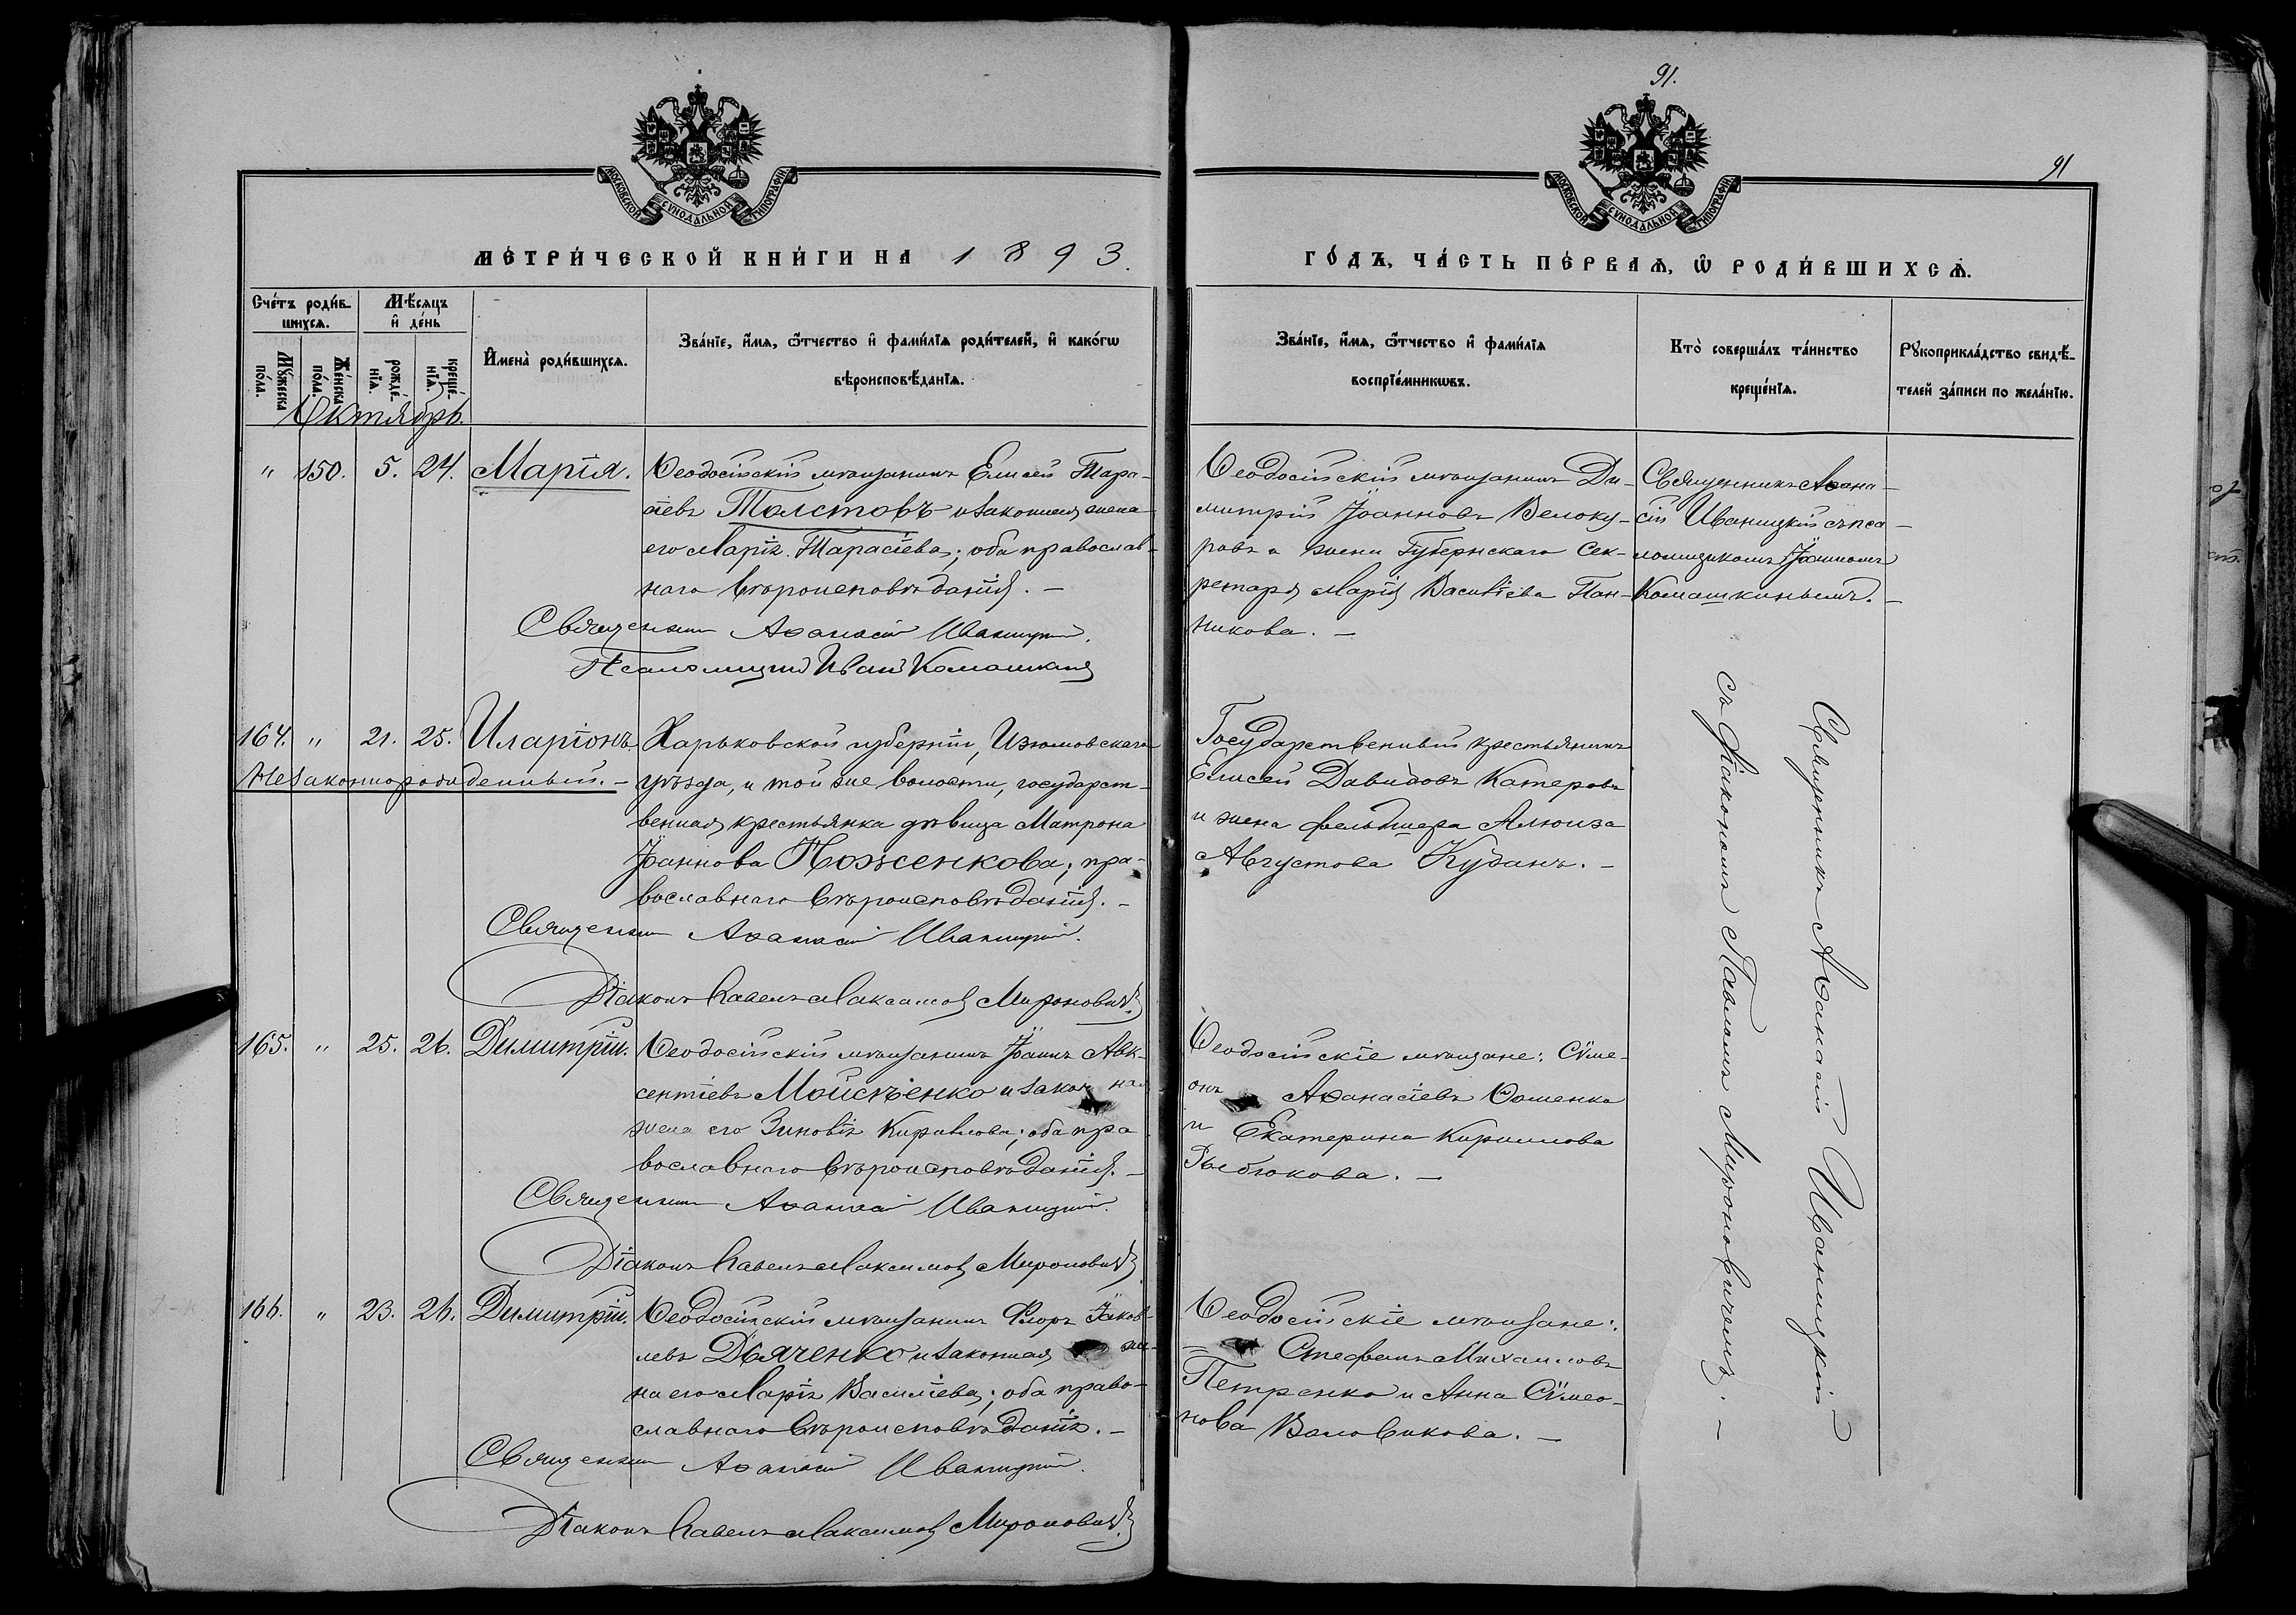 91.
91
МОСКОВСКОЙ СѴНОДАЛЬНОЙ ТИПОГРАФІИ
МОСКОВСКОЙ СѴНОДАЛЬНОЙ ТИПОГРАФІИ
МЕТРИ́ЧЕСКОЙ КНИ́ГИ НА 1893.
ГО́ДЪ, ЧА́СТЬ ПЕ́РВАѦ, Ѽ РОДИ́ВШИХСѦ.
Сче́тъ роди́в-
шихсѧ.
Мѣ́сяцъ
и҆ де́нь
Мꙋ́жеска
по́ла.
Же́нска
по́ла.
рожде́-
нїѧ.
креще́-
нїѧ.
И҆мена̀ роди́вшихсѧ.
Зва́нїе, и҆́мѧ, ѻ҆́тчество и҆ фами́лїѧ роди́телей, и҆ како́гѡ
вѣроисповѣ́данїѧ.
Зва́нїе, и҆́мѧ, ѻ҆́тчество и҆ фами́лїѧ
воспрїе́мникѡвъ.
Кто̀ соверша́лъ та́инство
креще́нїѧ.
Рꙋкоприкла́дство свидѣ́-
телей за́писи по жела́нїю.
Октябрь.
" 150. 5. 24. Марія.
Ѳеодосійскій мѣщанинъ Елисей Тара-
сіевъ Толстовъ и законная жена
его Марія Тарасіева; оба православ-
наго вѣроисповѣданія. –
Священникъ Аѳанасій Иваницкій.
Псаломщикъ Иванъ Комашкинъ
Ѳеодосійскій мѣщанинъ Ди-
митрій Іоанновъ Белоку-
ровъ и жена Губернскаго Сек-
ретаря Марія Васильева Пан-
никова. –
Священникъ Аѳана-
сій Иваницкій съ пса-
ломщикомъ Іоанномъ
Комашкинымъ. –
164. " 21. 25. Иларіонъ
Незаконнорожденный. –
Харьковской губерніи, Изюмовскаго
уѣзда, и той же волости, государст-
венная крестьянка дѣвица Матрона
Іоаннова Поженкова; пра-
вославнаго вѣроисповѣданія. –
Священникъ Аѳанасій Иваницкій.
Діаконъ Павелъ Максимовъ Мироновичъ
Государственный крестьянинъ
Елисей Давидовъ Катеровъ
и жена фельдшера Алюиза
Августова Куданъ. –
Священникъ Аѳанасій Иваницкій
съ Діакономъ Павломъ Мироновичемъ. –
165. " 25. 26. Димитрій.
Ѳеодосійскій мѣщанинъ Іоаннъ Авк-
сентіевъ Мойсѣенко и законная
жена его Зиновія Кириллова; оба пра
вославнаго вѣроисповѣданія. –
Священникъ Аѳанасій Иваницкій.
Діаконъ Павелъ Максимовъ Мироновичъ
Ѳеодосійскіе мѣщане: Сѷме-
онъ Аѳанасіевъ Ѳоменко
и Екатерина Кириллова
166. " 23. 26. Димитрій.
Ѳеодосійскій мѣщанинъ Флоръ Іаков-
левъ Дьяченко и законная же-
на его Марія Василіева; оба право-
славнаго вѣроисповѣданія. –
Священникъ Аѳанасій Иваницкій.
Діаконъ Павелъ Максимовъ Мироновичъ
Ѳеодосійскіе мѣщане:
Стефанъ Михаиловъ
Петренко и Анна Сѷмео-
нова Воловикова. –